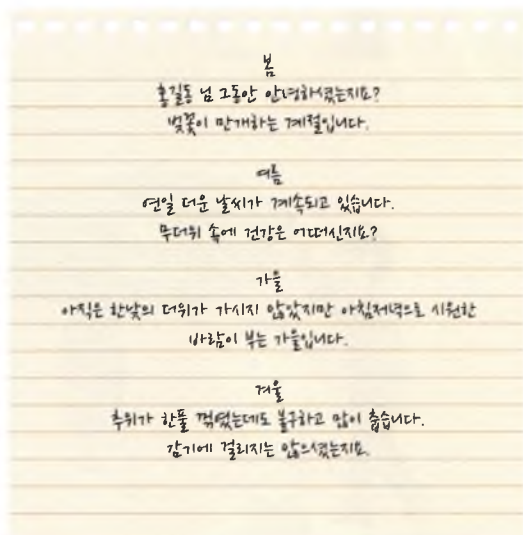 봄
홍길동 님 그동안 안녕하셨는지요?
벚꽃이 만개하는 계절입니다.
여름
연일 더운 날씨가 계속되고 있습니다.
무더위 속에 건강은 어떠신지요?
가을
아직은 한낮의 더위가 가시지 않았지만 아침저녁으로 시원한
바람이 부는 가을입니다.
겨울
추위가 한풀 꺾였는데도 불구하고 많이 춥습니다.
감기에 걸리지는 않으셨는지요.